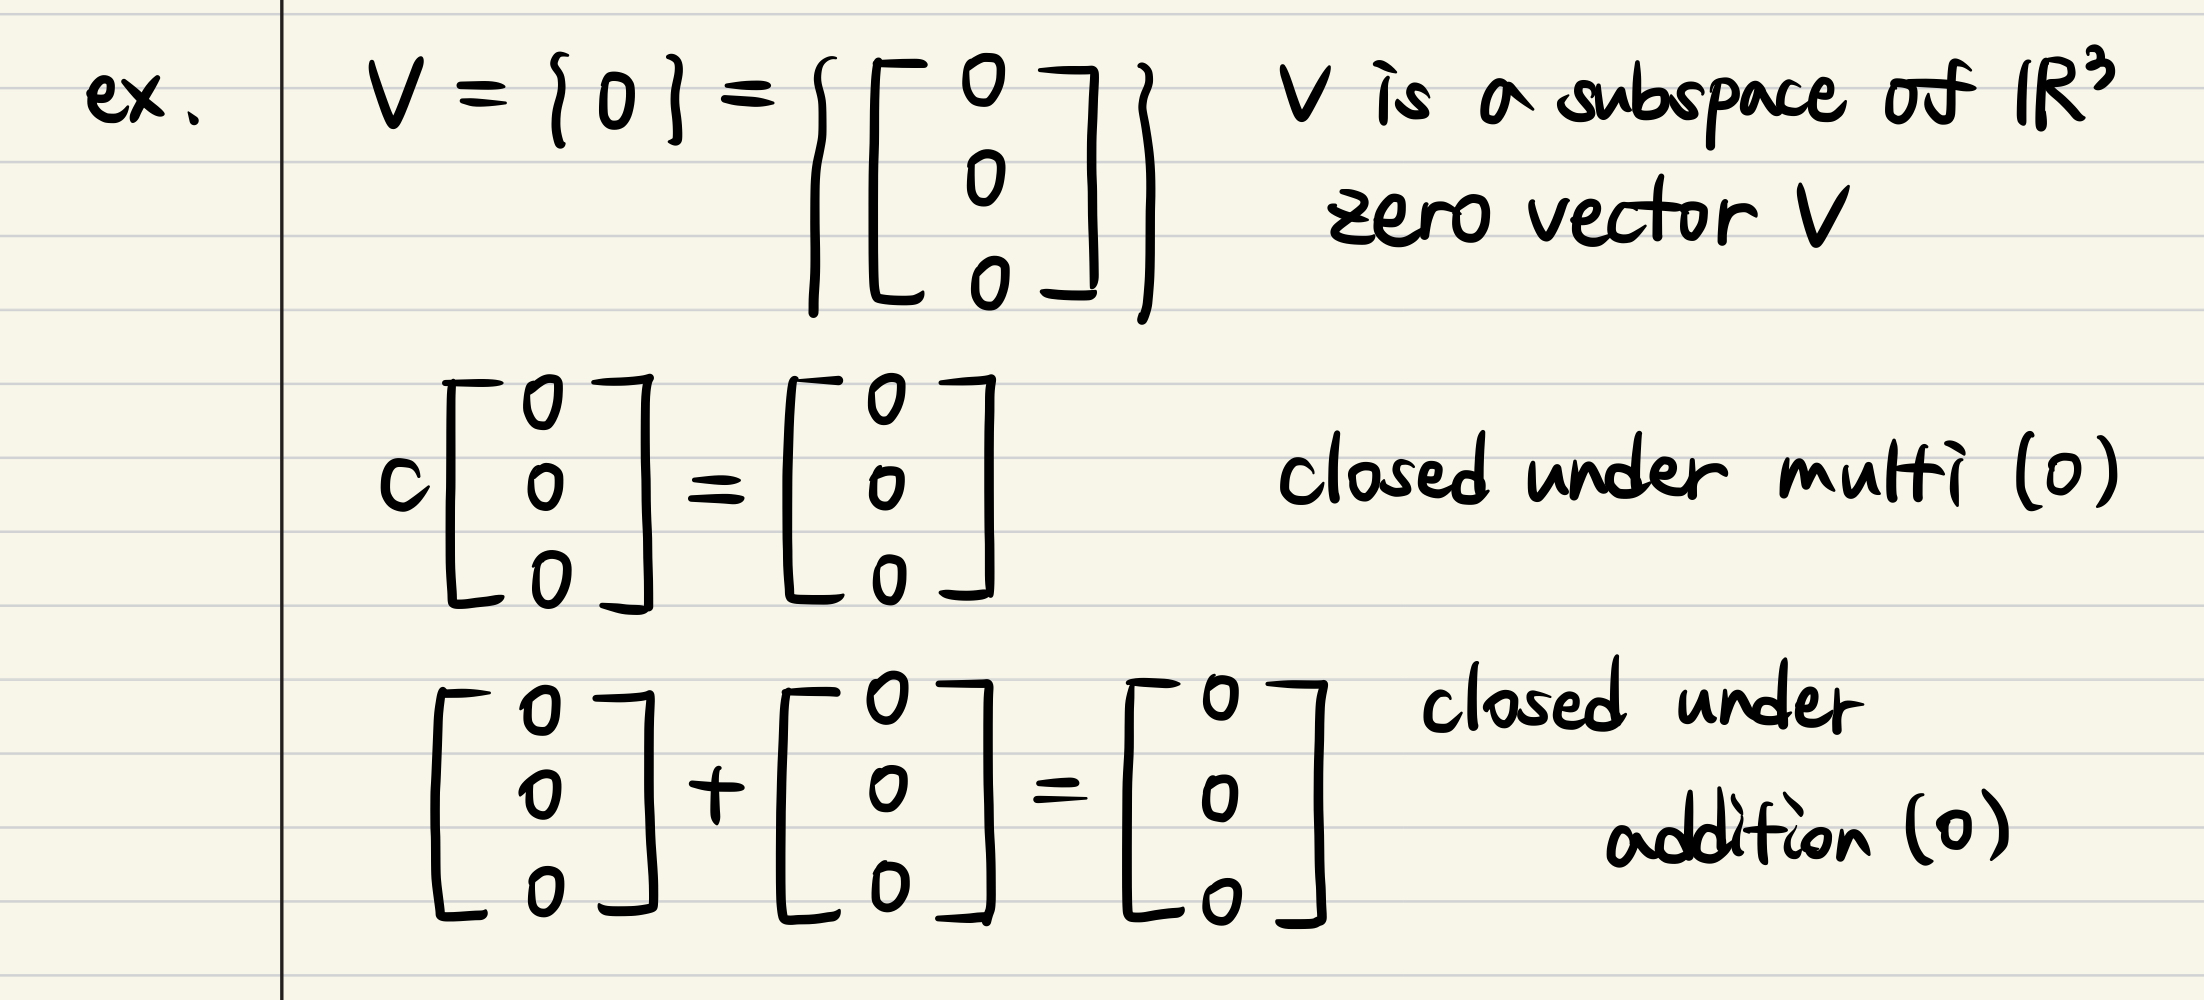 ex. V = {0} = {[0 0 0]} V is a subspace of ℝ³
zero vector V
c[0 0 0] = [0 0 0] closed under multi (0)
[0 0 0] + [0 0 0] = [0 0 0] closed under
addition (0)